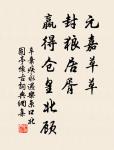 元嘉草草
封狼居胥
赢得仓皇北顾
辛棄疾永遇樂京口北
固亭懷古詞典網集